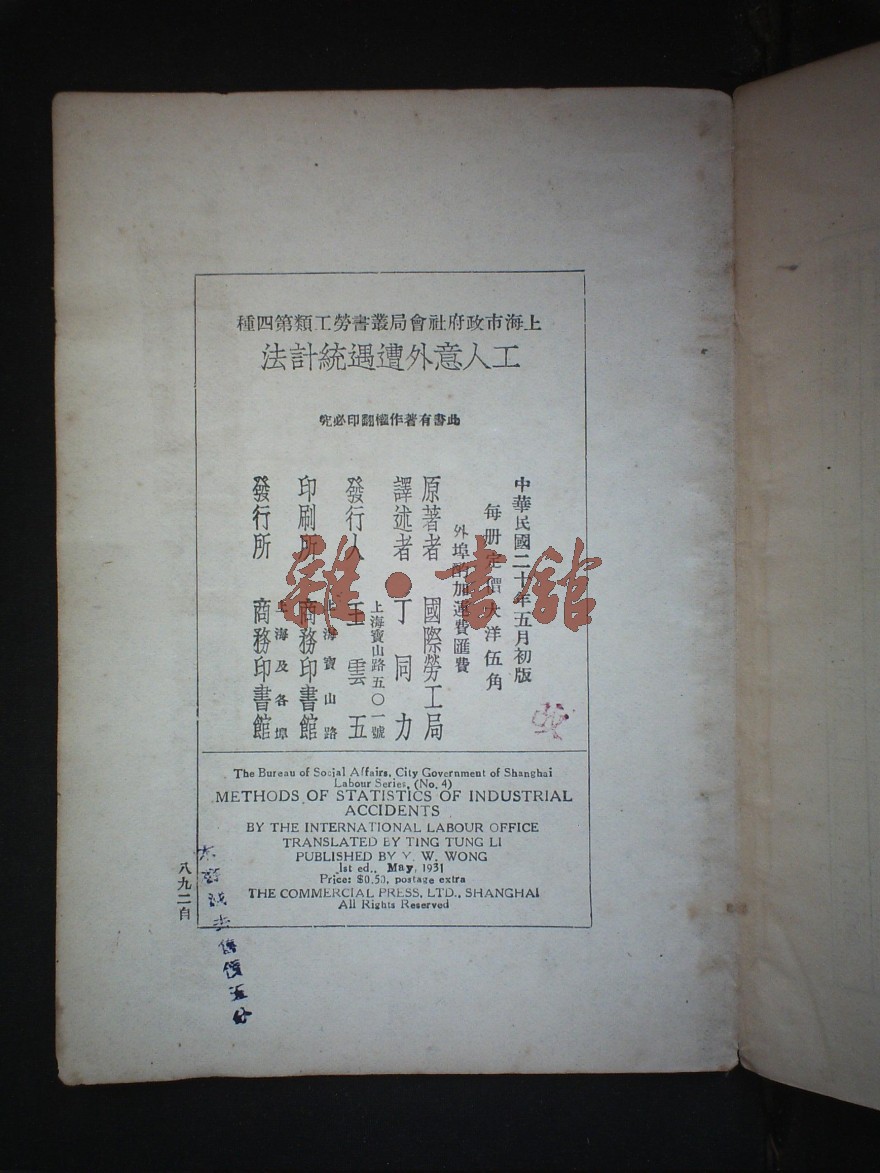 上海市政府社會局叢書勞工類第四種
工人意外遭遇統計法
此書有著作權翻印必究
中華民國二十年五月初版
每册定價大洋伍角
外埠酌加運費匯費
原著者 國際勞工局
譯述者 丁同力
上海寶山路五〇一號
發行人 王雲五
上海寶山路
印刷所 商務印書館
上海及各埠
發行所 商務印書館
雜·書館
The Bureau of Social Affairs, City Government of Shanghai
Labour Series, (No. 4)
METHODS OF STATISTICS OF INDUSTRIAL
ACCIDENTS
BY THE INTERNATIONAL LABOUR OFFICE
TRANSLATED BY TING TUNG LI
PUBLISHED BY Y. W. WONG
1st ed., May, 1931
Price: $0.50, postage extra
THE COMMERCIAL PRESS, LTD., SHANGHAI
All Rights Reserved
八九二自
售價